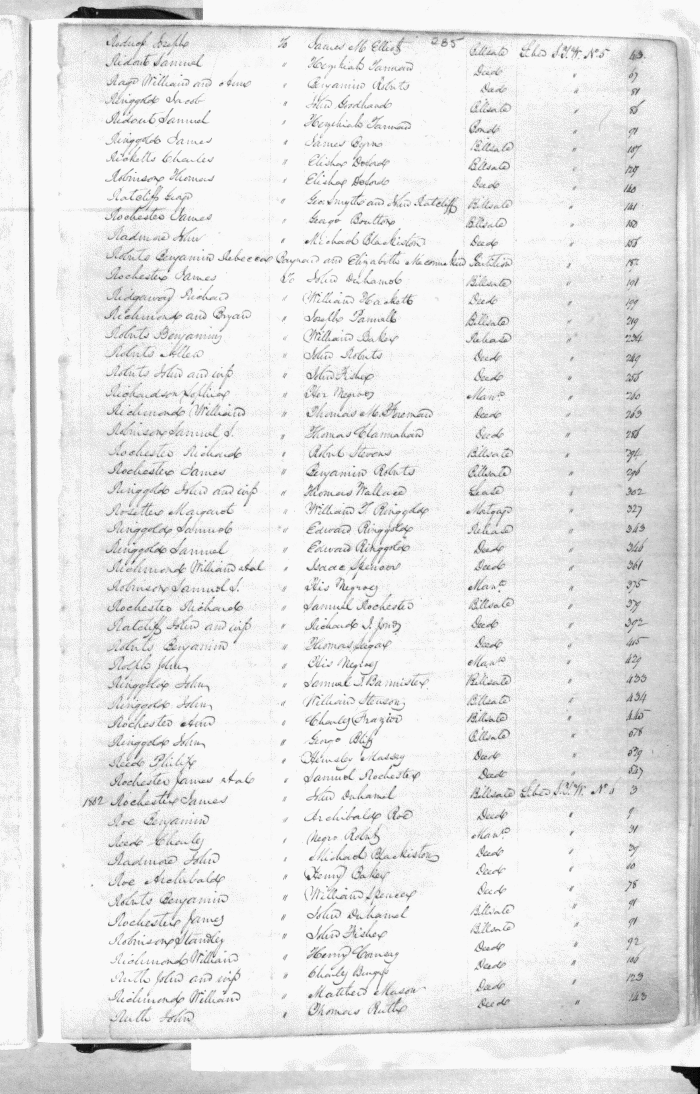 285
Joseph to James M Elliott Billsale Liber T.W. No 5 43
Ridout Samuel " Hezekiah Deed " 67
Rage William and " Benjamin Roberts Deed " 81
Ringgold Jacob " John Goodhand Billsale " 86
Ridout Samuel " Hezekiah Bond " 91
Ringgold James " James Billsale " 107
Ricketts Charles " Elisha Billsale " 129
Robinson Thomas " Elisha Deed " 140
Ratcliff " Geo. Smyth and John Ratcliff Billsale " 141
Rochester James " George Boulton Billsale " 150
Radmore John " Michael Blackiston Deed " 155
Roberts Benjamin Rebecca and Elizabeth Partition " 182
Rochester James to John Duhamel Billsale " 191
Ridgaway Richard " William Hackett Deed " 199
Richmond and Bryan " Joseph Billsale " 219
Roberts Benjamin " William Baker Release " 234
Roberts Allen " John Roberts Deed " 249
Roberts John and wife " John Fisher Deed " 255
Richardson " Her Negroes Man. " 260
Richmond William " Thomas M. Foreman Deed " 263
Robinson Samuel S. " Thomas Deed " 286
Rochester Richard " Robert Stevens Billsale " 294
Rochester James " Benjamin Roberts Billsale " 296
Ringgold John and wife " Thomas Wallace Lease " 302
Margaret " William T. Ringgold Mortgage " 327
Ringgold Samuel " Edward Ringgold Release " 343
Ringgold Samuel " Edward Ringgold Deed " 344
Richmond William & al " Isaac Spencer Deed " 361
Robinson Samuel S. " His Negroes Man. " 375
Rochester Richard " Samuel Rochester Billsale " 379
Ratcliff John and wife " Richard I. Jones Deed " 392
Roberts Benjamin " Thomas Deed " 415
Rolph John " His Negroes Man. " 429
Ringgold John " Samuel T. Bannister Billsale " 433
Ringgold John " William Stenson Billsale " 434
Rochester Ann " Charles Frazier Billsale " 445
Ringgold John " George Billsale " 578
Reed Philip " Hemsley Massey Deed " 579
Rochester James & al " Samuel Rochester Deed " 587
1802 Rochester James " John Duhamel Billsale Liber T.W. No 3
Roe Benjamin " Archibald Roe Deed " 9
Reed Charles " Negro Robert Man. " 31
Radmore John " Michael Blackiston Deed " 39
Roe Archibald " Henry Baker Deed " 60
Roberts Benjamin " William Spencer Deed " 78
Rochester James " John Duhamel Billsale " 91
Robinson Standley " John Fisher Billsale " 91
Richmond William " Henry Deed " 92
Ruth John and wife " Charles Deed " 106
Richmond William " Matthew Mason Deed " 123
Ruth John " Thomas Ruth Deed " 143